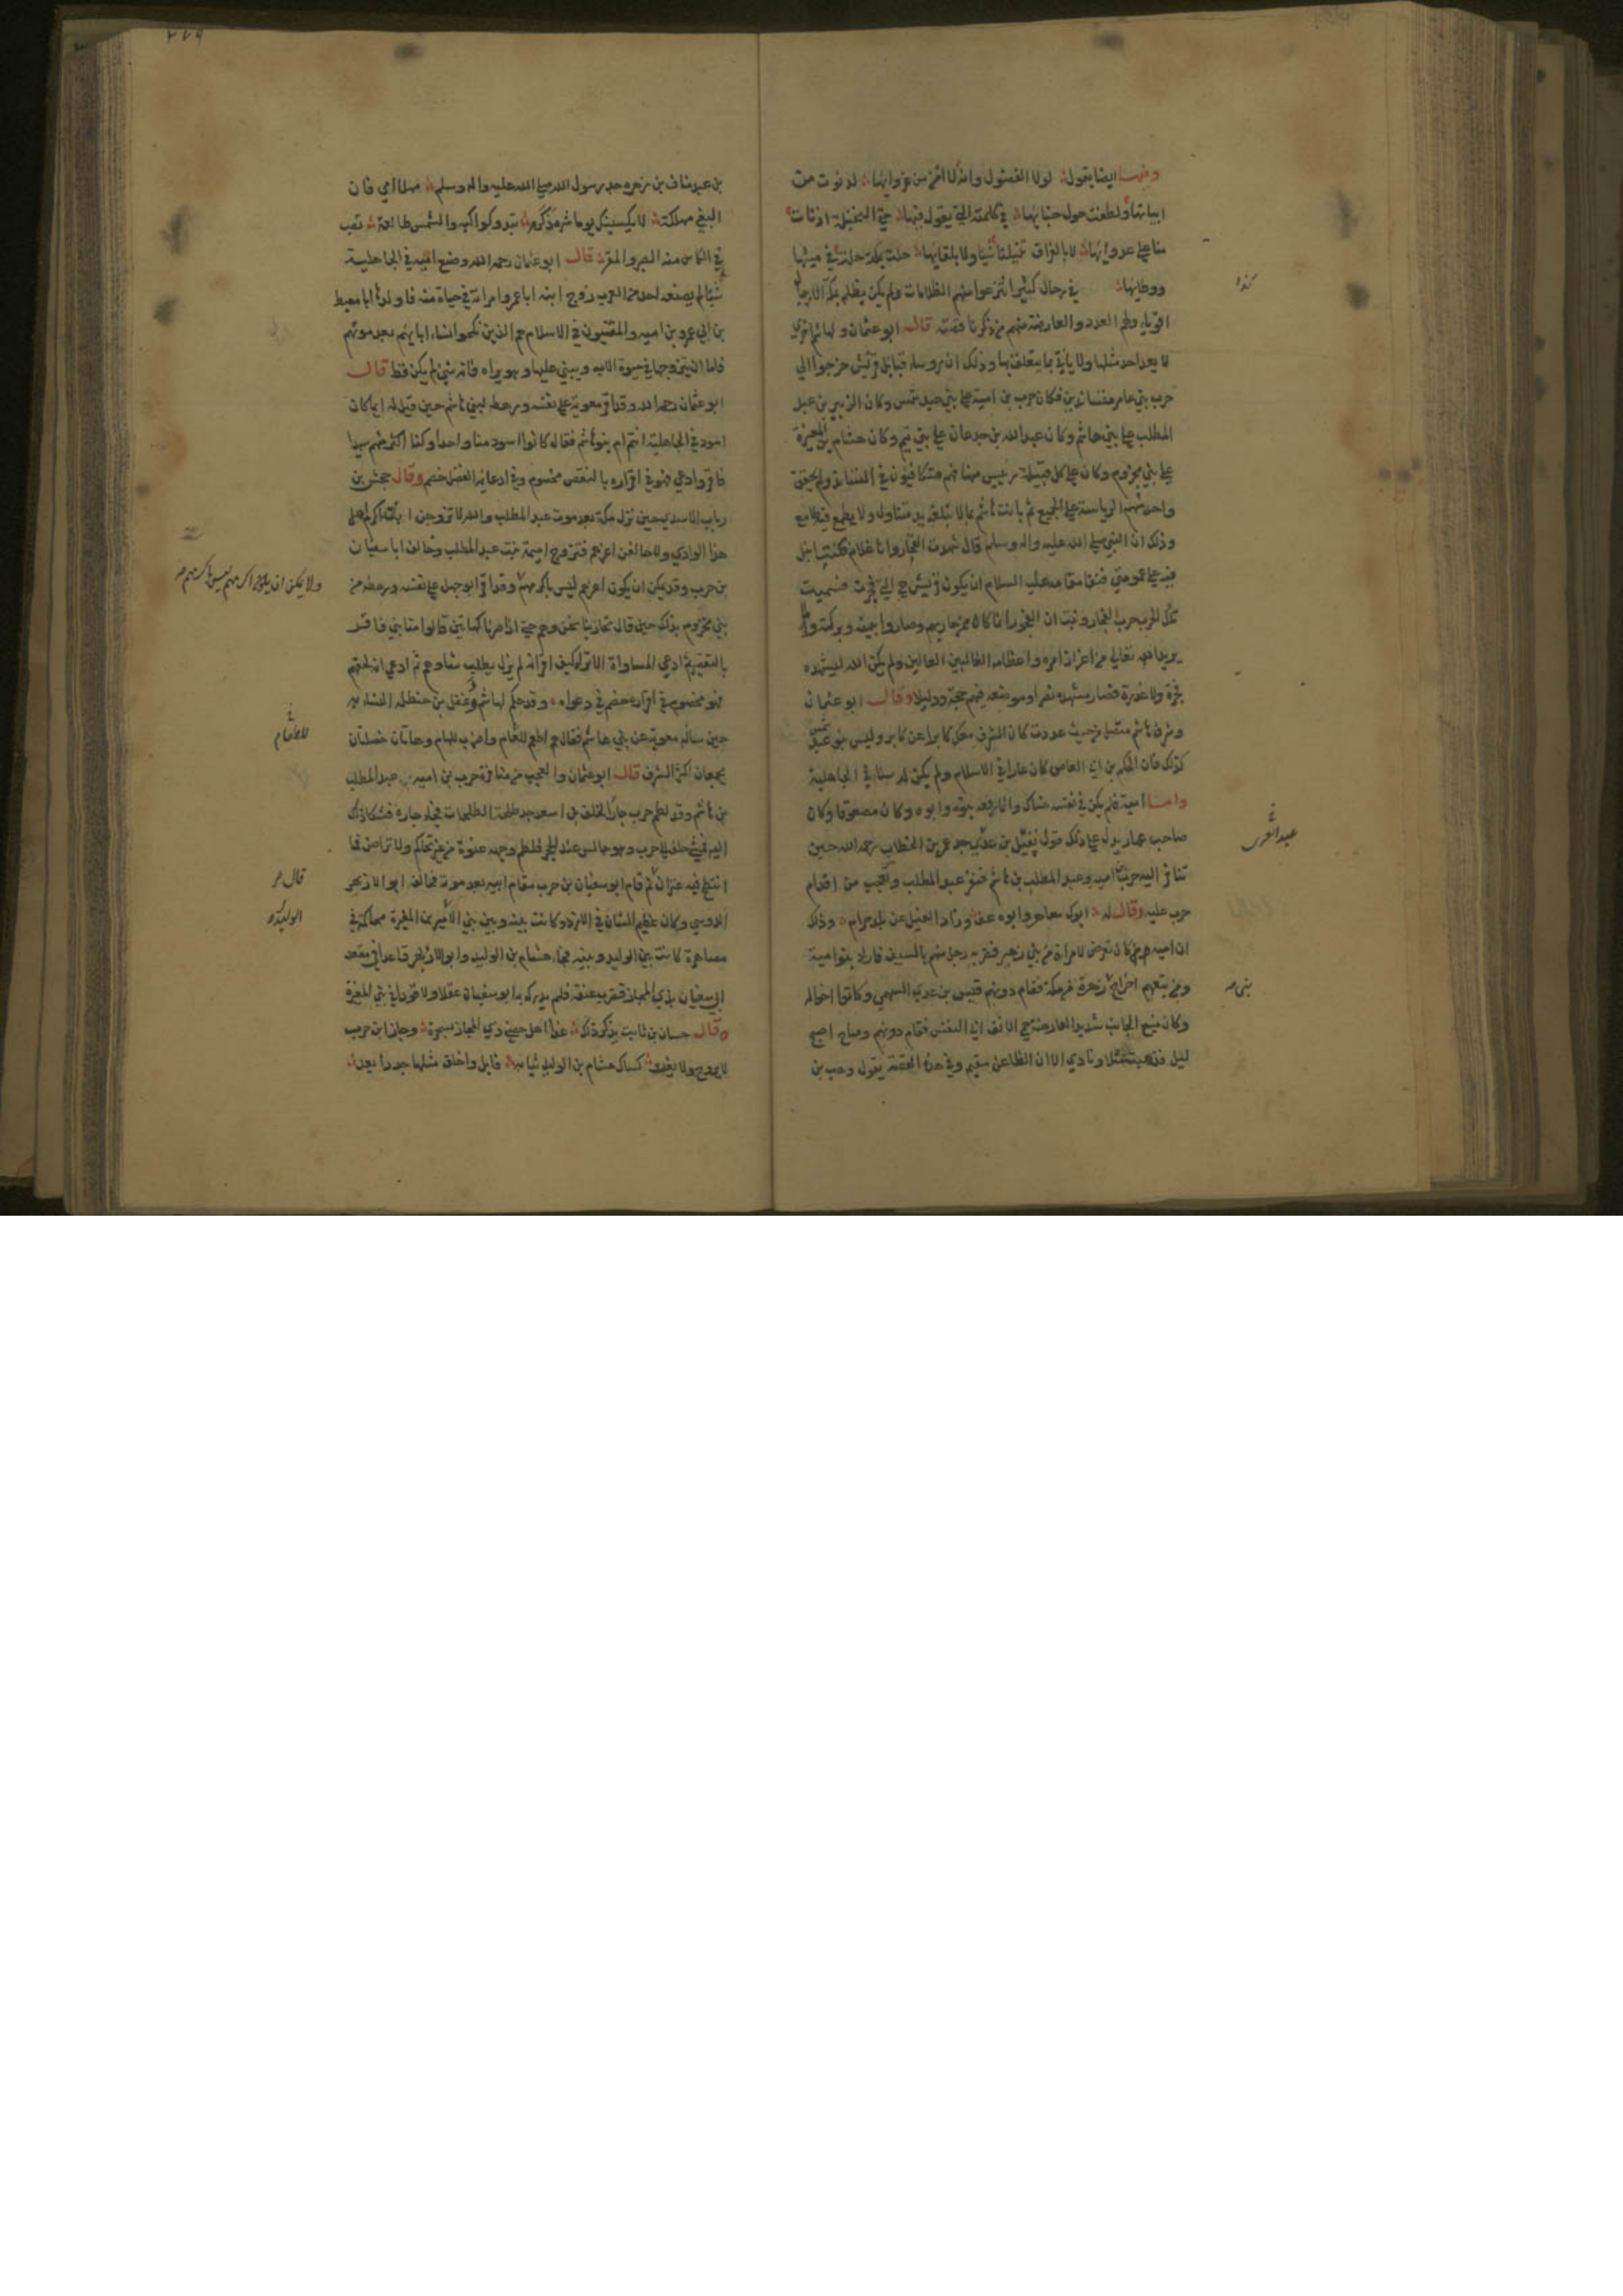 ومنها ايضا يقول لولا الفضول وانه لا امن من عزوانها لدنوت من
ابياتها ولطفت حول خبائها في كلمته التي يقول فيها حي النخيلة اذ نات
منا على عدوائها لا بالفراق تنيلنا شيئا ولا بلقائها حلت بمكة حلة في مشيها
ووطائها في رجال كثير انتزعوا منهم الظلامات ولم يكن يظلم بمكة الا رجال
اقويا ولهم العدد والعارضة منهم من ذكرنا قصته قال ابو عثمان ولهاشم اخرى
لا يعد احد مثلها ولا ياتي بما يتعلق بها وذلك ان روسا قبايل قريش خرجوا الى
حرب بني عامر متساندين فكان حرب بن امية على بني عبد شمس وكان الزبير بن عبد
المطلب على بني هاشم وكان عبد الله بن جدعان على بني تيم وكان هشام بن المغيرة
على بني مخزوم وكان على كل قبيلة رئيس منها فهم متكافئون في التساند ولم يحقق
واحد منهم الرياسة على الجميع ثم بانت هاشم بما لا تبلغه يد متناول ولا يطمع فيه طامع
وذلك ان النبي صلى الله عليه واله وسلم قال شهدت الفجار وانا غلام فكنت انبل
فيه على عمومتي فنفى مقامه عليه السلام ان يكون قريش هي التي فجرت فسميت
تلك الحرب حرب الفجار وثبت ان الفجور انما كان ممن حاربهم وصاروا بيمنه وبركته ولما
يريد الله تعالى من اعزاز امره واعظامه الغالبين العالين ولم يكن الله ليشهده
فجرة ولا غدرة فصار مشهده نصرا وموضعه فيهم حجة ودليلا وقال ابو عثمان
وشرف هاشم متصل من حيث عددت كان الشرف معه كابرا عن كابر وليس بنو عبد شمس
كذلك فان الحكم بن ابي العاص كان عاريا في الاسلام ولم يكن له سنا في الجاهلية
واما امية فلم يكن في نفسه هناك وانما رفعه بنوه وابوه وكان مضعوفا وكان
صاحب عهار يدل على ذلك قول نفيل بن عدي جد عمر بن الخطاب رحمه الله حين
تنافر اليه حرب بن امية وعبد المطلب بن هاشم فنفر عبد المطلب وتعجب من اقدام
حرب عليه وقال له ابوك معاهر وابوه عف وذاد الفيل عن بلد حرام وذلك
ان امية كان تعرض لامراة من بني زهرة فضربه رجل منهم بالسيف فاراد بنو امية
ومن تبعهم اخراج زهرة من مكة فقام دونهم قيس بن عدي السهمي وكانوا اخواله
وكان منيع الجانب شديد العارضة حمي الانف ابي النفس فقام دونهم وصاح اصبح
ليل فذهبت مثلا ونادى الا ان الظاعن مقيم وفي هذه القصة يقول وهب بن
كذا
عبد العزى
بني
بن عبد مناف بن زهرة جد رسول الله صلى الله عليه واله وسلم مهلا امي فان
البغي مهلكة لا يكسبنك يوما شره ذكر تبدو كواكبه والشمس طالعة تصب
في الكاس منه الصبر والمقر قال ابو عثمان رحمه الله وصنع امية في الجاهلية
شيئا لم يصنعه احد من العرب زوج ابنه ابا عمرو امراته في حياة منه فاولدها ابا معيط
بن ابي عمرو بن امية والمقتيون في الاسلام هم الذين نكحوا نساء ابايهم بعد موتهم
فاما ان يتزوجها في حيوة الاب ويبني عليها وهو يراه فانه شي لم يكن قط قال
ابو عثمان رحمه الله وقد اقر معوية على نفسه ورهطه لبني هاشم حين قيل له ايما كان
اسود في الجاهلية انتم ام بنو هاشم فقال كانوا اسود منا واحدا وكنا اكثر منهم سيدا
فاقر وادعى فهو في اقراره بالنقص مخصوم وفي ادعائه الفضل خصم وقال جحش بن
رياب الاسدي حين نزل مكة بعد موت عبد المطلب والله لا تزوجن ابنة اكرم اهل
هذا الوادي ولاحالفن اعزهم فتزوج اميمة بنت عبد المطلب وحالف ابا سفيان
بن حرب وقد يمكن ان يكون اعزهم ليس باكرمهم وقد اقر ابو جهل على نفسه ورهطه من
بني مخزوم بذلك حين قال تحاربنا نحن وهم حتى اذا صرنا كهاتين قالوا منا نبي فاقر
بالتقصير ثم ادعى المساواة الا تراه كيف اقر انه لم يزل يطلب شاوهم ثم ادعى انه لحقهم
فهو مخصوم في اقراره خصم في دعواه وقد حكم لهاشم دغفل بن حنظلة النسابة
حين ساله معوية عن بني هاشم فقال هم اطعم للطعام واضرب للهام وهاتان خصلتان
يجمعان اكثر الشرف قال ابو عثمان والعجب من منافرة حرب بن امية عبد المطلب
بن هاشم وقد لطم حرب جارا لخلف بن اسعد جد طلحة الطلحات فجاء جاره فشكا ذلك
اليه فمشى خلف الى حرب وهو جالس عند الحجر فلطم وجهه عنوة من غير تحاكم ولا تراض فما
انتطح فيه عنزان ثم قام ابو سفيان بن حرب مقام ابيه بعد موته فحالفه ابو الازيهر
الدوسي وكان عظيم الشان في الازد وكانت بينه وبين بني الوليد بن المغيرة محاكمة في
مصاهرة كانت بين الوليد وبينه فجاءه هشام بن الوليد وابو الازيهر قاعد في مقعد
ابي سفيان بذي المجاز فضرب عنقه فلم يدرك به ابو سفيان عقلا ولا قودا في بني المغيرة
وقال حسان بن ثابت يذكر ذلك غدا اهل حصني ذي المجاز بسحرة وجار ابن حرب
لا يروح ولا يغدو كساك هشام بن الوليد ثيابه فابل واخلق مثلها جددا بعد
ولا يمكن ان يكون اكرمهم ليس باكرمهم
للطعام
قال
الوليد